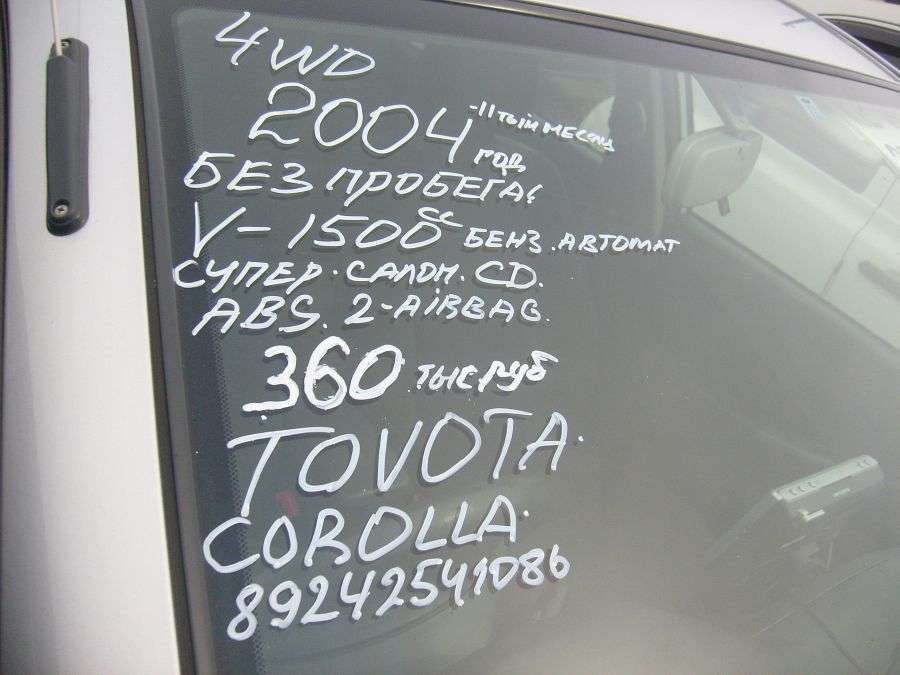 4WD
2004 год -11тый месяц
БЕЗ ПРОБЕГА!
V-1500 cc БЕНЗ. АВТОМАТ
СУПЕР. САЛОН. CD.
ABS. 2-AiRBAG.
360 тыс руб
TOVOTA.
COROLLA.
89242541086